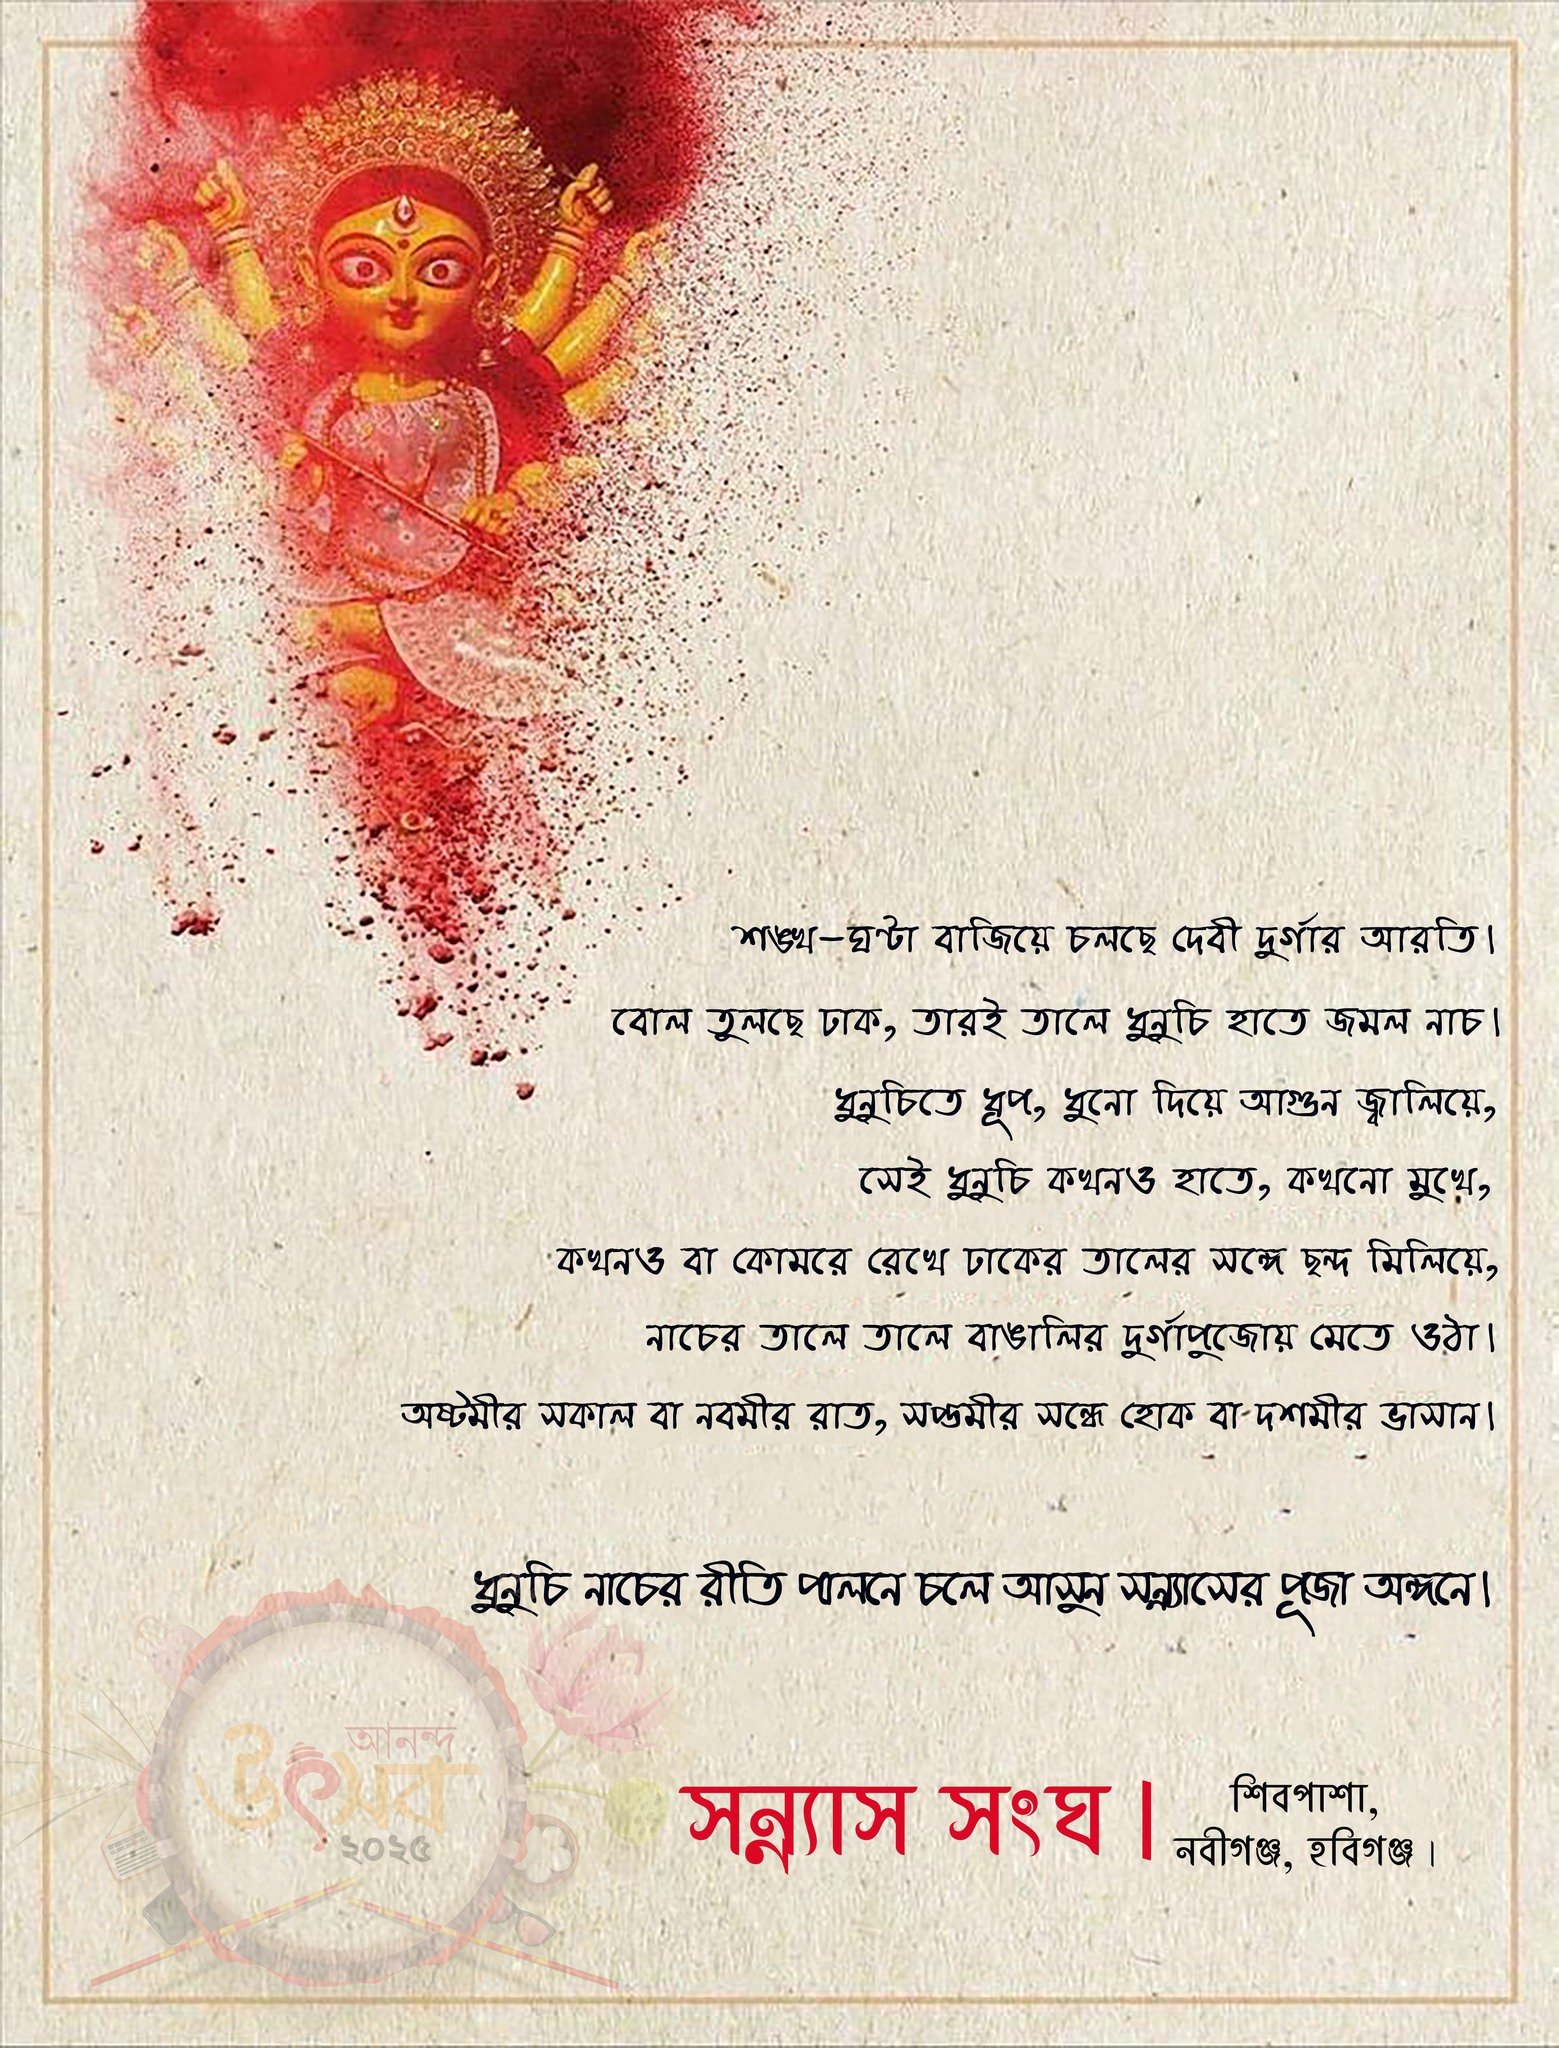 শঙ্খ-ঘণ্টা বাজিয়ে চলছে দেবী দুর্গার আরতি।
বোল তুলছে ঢাক, তারই তালে ধুনুচি হাতে জমল নাচ।
ধুনুচিতে ধূপ, ধুনো দিয়ে আগুন জ্বালিয়ে,
সেই ধুনুচি কখনও হাতে, কখনো মুখে,
কখনও বা কোমরে রেখে ঢাকের তালের সঙ্গে ছন্দ মিলিয়ে,
নাচের তালে তালে বাঙালির দুর্গাপুজোয় মেতে ওঠা।
অষ্টমীর সকাল বা নবমীর রাত, সপ্তমীর সন্ধে হোক বা দশমীর ভাসান।
ধুনুচি নাচের রীতি পালনে চলে আসুন সন্ন্যাসের পূজা অঙ্গনে।
আনন্দ
উৎসব
২০২৫
সন্ন্যাস সংঘ।
শিবপাশা,
নবীগঞ্জ, হবিগঞ্জ।